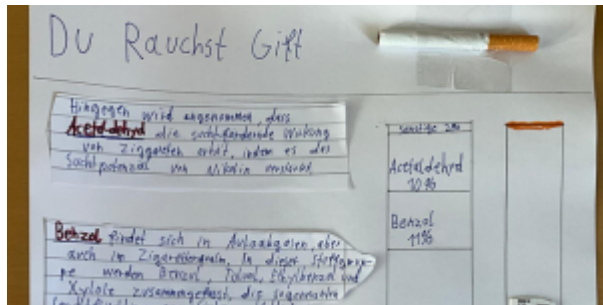 Du Rauchst Gift
Hingegen wird angenommen, dass
Acetaldehyd die suchtfördernde Wirkung
von Ziggaretten erhöt, indem es das
Suchtpotenzial von Nikotin verstärkt
Benzol findet sich in Autoabgasen, aber
auch im Zigarettenqualm. In dieser Stoffgrup-
pe werden Benzol, Toluol, Ethylbenzol und
Xylole zusammengefasst, die sogenannten
Sonstige 2%
Acetaldehyd
10%
Benzol
11%